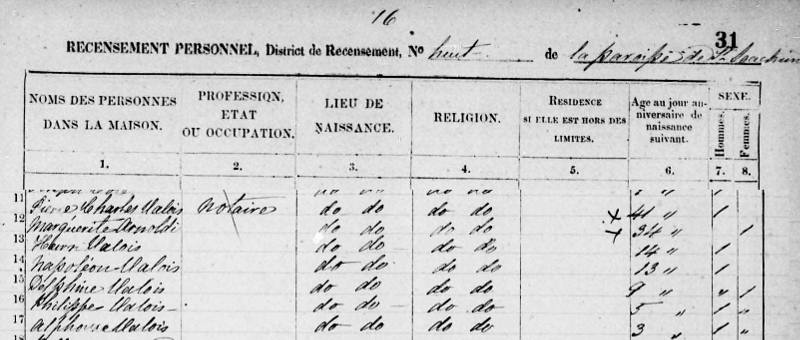 16
31
RECENSEMENT PERSONNEL, District de Recensement, No huit de la paroisse de St Joachim
NOMS DES PERSONNES DANS LA MAISON. PROFESSION, ETAT OU OCCUPATION. LIEU DE NAISSANCE. RELIGION. RESIDENCE SI ELLE EST HORS DES LIMITES. Age au jour anniversaire de naissance suivant. SEXE. Hommes. Femmes.
1. 2. 3. 4. 5. 6. 7. 8.
do do do do " 1
11 Pierre Charles Valois notaire do do do do x 41 " 1
12 Marguerite Arnoldi do do do do x 34 " 1
13 Henri Valois do do do do 14 " 1
14 Napoléon Valois do do do do 13 " 1
15 Delphine Valois do do do do 9 " " 1
16 Philippe Valois do do do do 5 " 1
17 Alphonse Valois do do do do 3 " 1
18